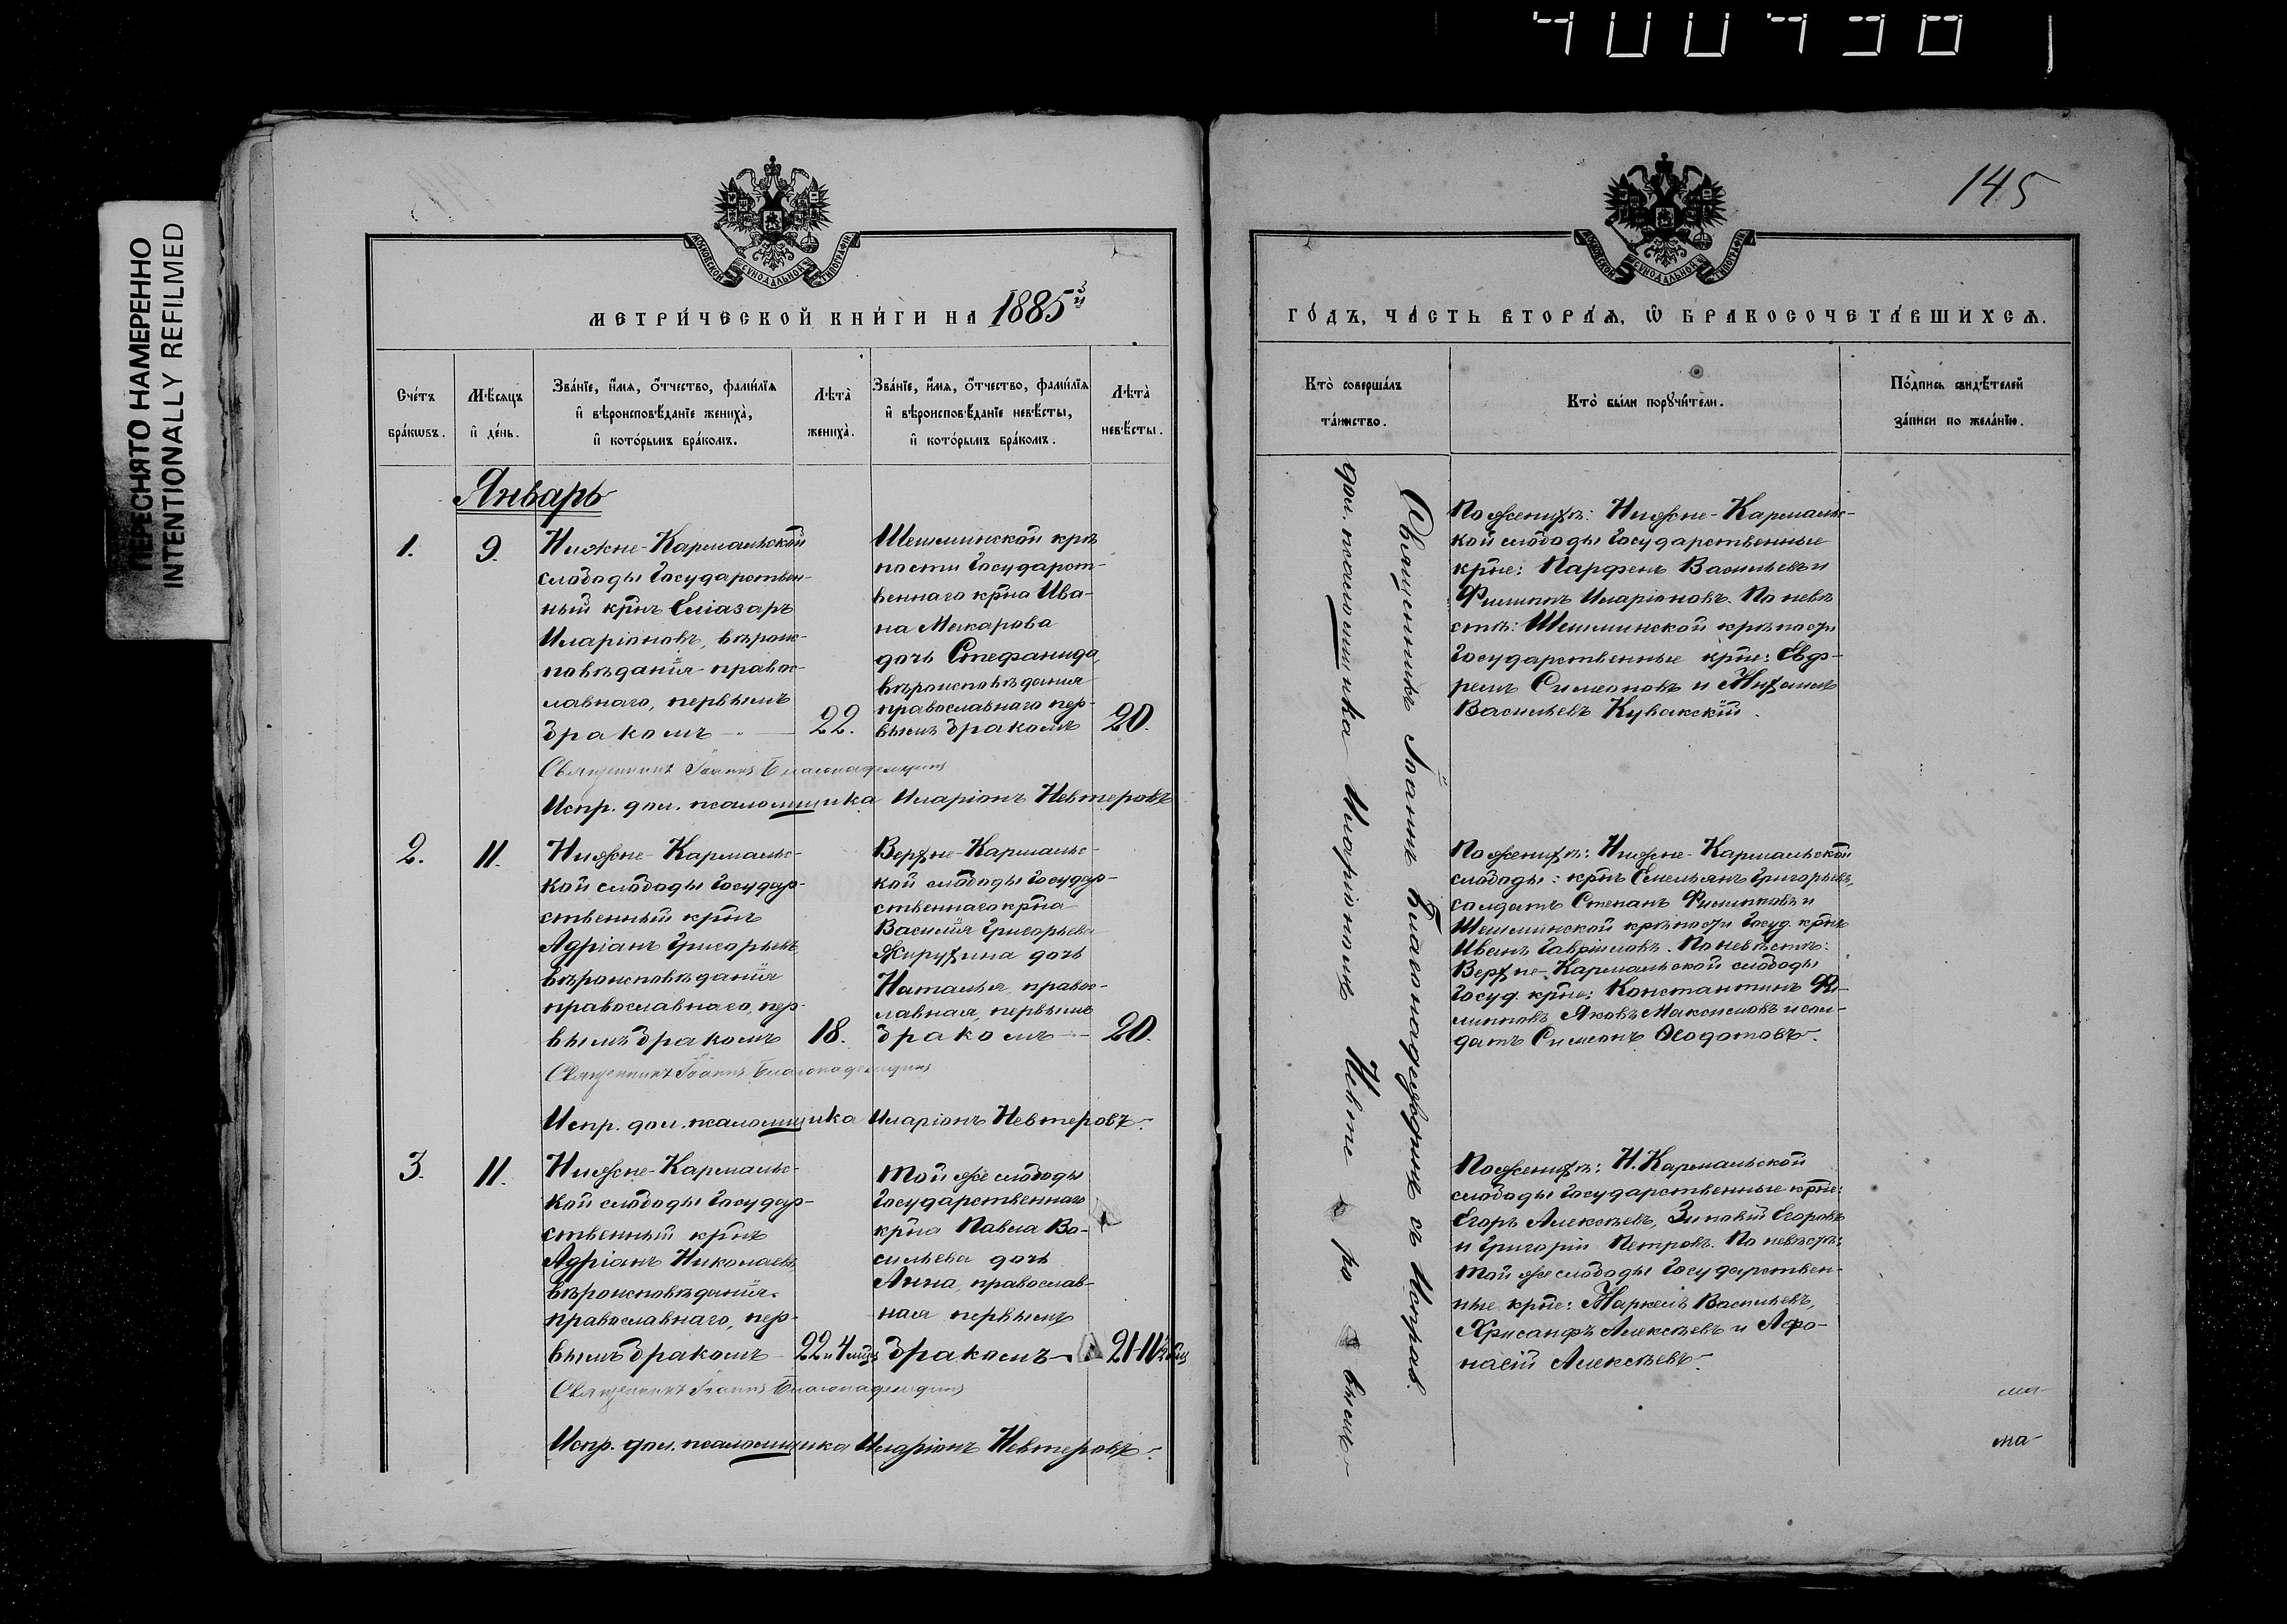 400498
ПЕРЕСНЯТО НАМЕРЕННО
INTENTIONALLY REFILMED
МОСКОВСКОЙ СѴНОДАЛЬНОЙ ТИПОГРАФІИ
МЕТРИ́ЧЕСКОЙ КНИ́ГИ НА 1885й
Сче́тъ бра́кѡвъ.
Мѣ́сяцъ и҆ де́нь.
Зва́нїе, и҆́мѧ, ѻ҆́тчество, фами́лїѧ
и҆ вѣроисповѣ́данїе жениха̀,
и҆ кото́рымъ бра́комъ.
Лѣ́та̀ жениха̀.
Зва́нїе, и҆́мѧ, ѻ҆́тчество, фами́лїѧ
и҆ вѣроисповѣ́данїе невѣ́сты,
и҆ кото́рымъ бра́комъ.
Лѣ́та̀ невѣ́сты.
Январь
1.
9.
Нижне-Кармальской
слободы Государствен-
ный крнъ Еліазаръ
Иларіоновъ, вѣроис-
повѣданія правос-
лавнаго, первымъ
бракомъ
22.
Шешминской крѣ
пости Государст-
веннаго крна Ива-
на Макарова
дочь Стефанида,
вѣроисповѣданія
православнаго пер-
вымъ бракомъ
20.
Священникъ Іоаннъ Благонадеждинъ
Испр. дол. псаломщика Иларіонъ Невтеровъ
2.
11.
Нижне-Кармальс-
кой слободы Государ-
ственный крнъ
Адріанъ Григорьевъ
вѣроисповѣданія
православнаго, пер-
вымъ бракомъ
18.
Верхне-Кармальс-
кой слободы Государ-
ственнаго крна
Василія Григорьева
Жирухина дочь
Наталья, правос-
лавная, первымъ
бракомъ
20.
Священникъ Іоаннъ Благонадеждинъ
Испр. дол. псаломщика Иларіонъ Невтеровъ.
3.
11.
Нижне-Кармальс-
кой слободы Государ-
ственный крнъ
Адріанъ Николаевъ,
вѣроисповѣданія
православнаго, пер-
вымъ бракомъ
22 и 4 мцъ
Той же слободы
Государственнаго
крна Павла Ва-
сильева дочь
Анна, православ-
ная первымъ
бракомъ
21-11½
Священникъ Іоаннъ Благонадеждинъ
Испр. дол. псаломщика Иларіонъ Невтеровъ.
145
МОСКОВСКОЙ СѴНОДАЛЬНОЙ ТИПОГРАФІИ
ГО́ДЪ, ЧА́СТЬ ВТОРА́Ѧ, Ѡ҆ БРАКОСОЧЕТА́ВШИХСѦ.
Кто̀ соверша́лъ
та́инство.
Кто̀ бы́ли порꙋчи́тели.
По́дпись свидѣ́телей
за́писи по жела́нїю.
Священникъ Іоаннъ Благонадеждинъ съ Исправ.
дол. псаломщика Иларіономъ Невтеровымъ.
По женихѣ: Нижне-Кармальс-
кой слободы Государственные
крне: Парфенъ Васильевъ и
Филиппъ Иларіоновъ. По невѣ
стѣ: Шешминской крѣпости
Государственные крне: Евф-
ремъ Симеоновъ и Михаилъ
Васильевъ Кувакскій.
По женихѣ: Нижне-Кармальской
слободы: крнъ Емельянъ Григорьевъ,
солдатъ Степанъ Филипповъ и
Шешминской крѣпости Госуд. крнъ
Иванъ Гавріиловъ. По невѣстѣ:
Верхне-Кармальской слободы
Госуд. крне: Константинъ Фи-
липповъ Яковъ Максимовъ и сол-
датъ Симеонъ Ѳедотовъ.
По женихѣ: Н. Кармальской
слободы Государственные крне:
Егоръ Алексѣевъ, Зиновій Егоровъ
и Григорій Петровъ. По невѣстѣ:
той же слободы Государствен-
ные крне: Маркелъ Васильевъ,
Хрисанфъ Алексѣевъ и Афа-
насій Алексѣевъ.